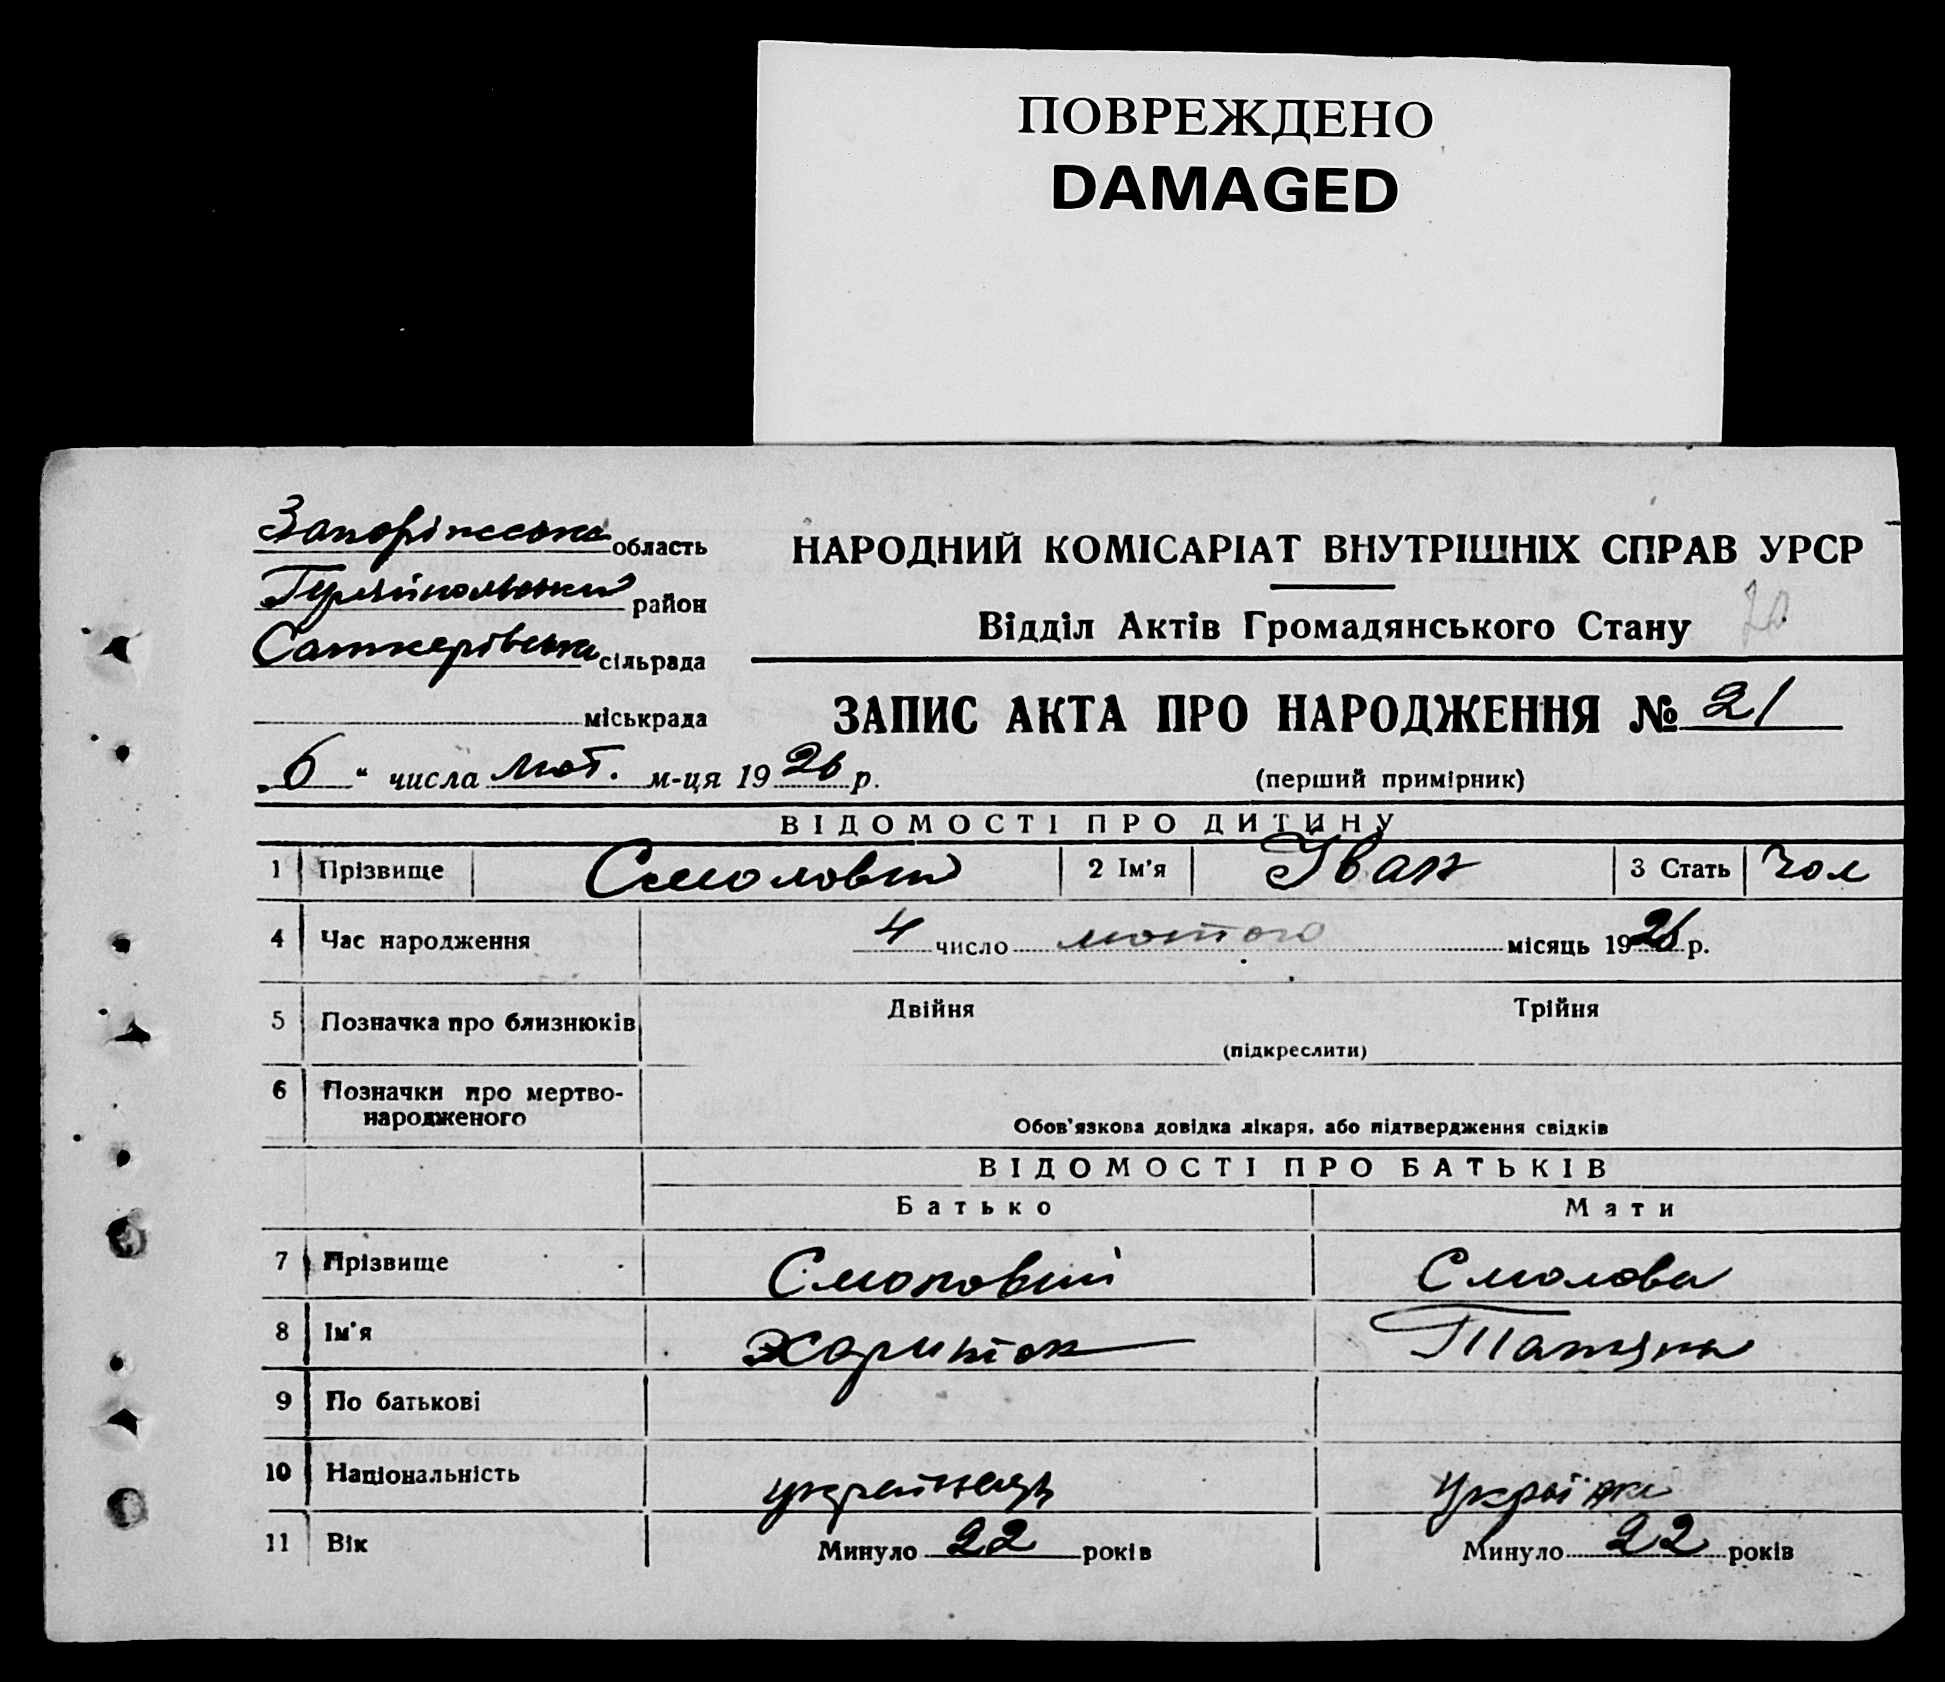 ПОВРЕЖДЕНО
DAMAGED
Запоріжська область
Гуляйпольський район
сільрада
міськрада
НАРОДНИЙ КОМІСАРІАТ ВНУТРІШНІХ СПРАВ УРСР
Відділ Актів Громадянського Стану
20
ЗАПИС АКТА ПРО НАРОДЖЕННЯ № 21
(перший примірник)
„6“ числа лют. м-ця 1926 р.
ВІДОМОСТІ ПРО ДИТИНУ
1 Прізвище Смоловий 2 Ім'я Іван 3 Стать Чол
4 Час народження 4 число лютого місяць 1926 р.
5 Позначка про близнюків Двійня Трійня
(підкреслити)
6 Позначки про мертво-
народженого
Обов'язкова довідка лікаря, або підтвердження свідків
ВІДОМОСТІ ПРО БАТЬКІВ
Батько Мати
7 Прізвище Смоловий Смолова
8 Ім'я Харитон Татяна
9 По батькові
10 Національність українець Українка
11 Вік Минуло 22 років Минуло 22 років